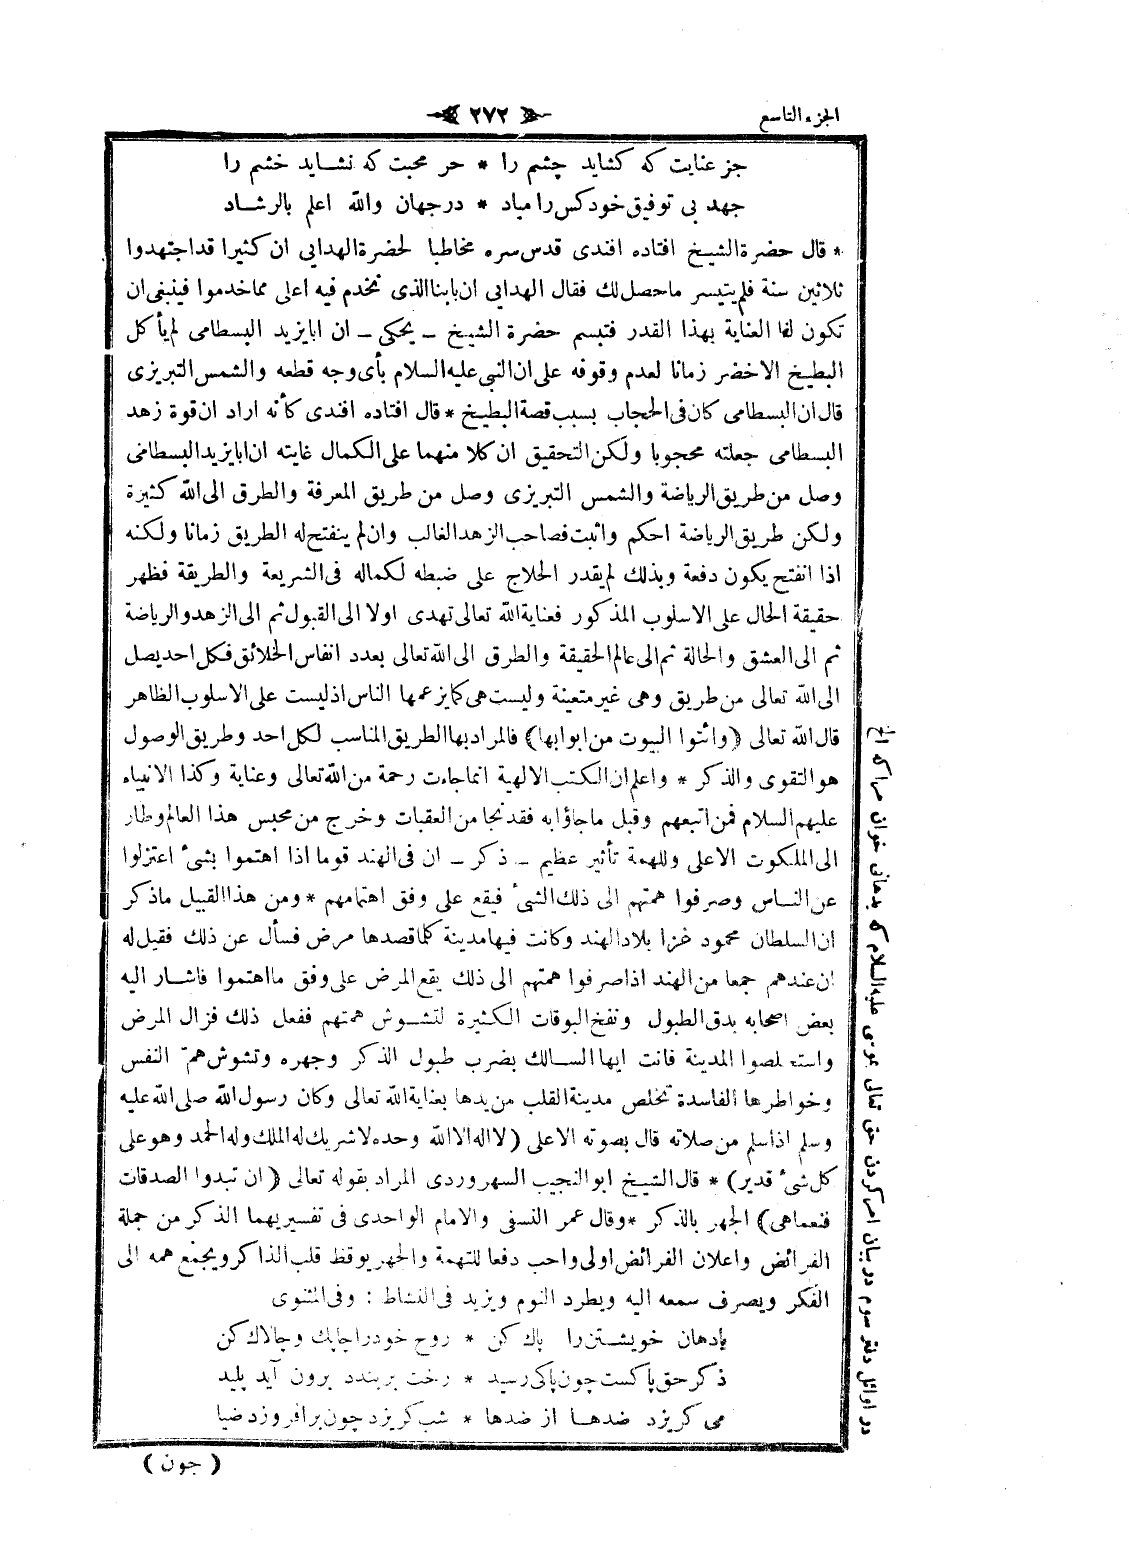 الجزء التاسع
٢٧٢
جز عنايت كه كشايد چشم را * جز محبت كه نشايد خشم را
جهد بى توفيق خود كس را مباد * در جهان والله اعلم بالرشاد
* قال حضرة الشيخ افتاده افندى قدس سره مخاطبا لحضرة الهدايى ان كثيرا قد اجتهدوا
ثلاثين سنة فلم يتيسر ما حصل لك فقال الهدايى ان بابنا الذى نخدم فيه اعلى مما خدموا فينبغى ان
تكون لنا العناية بهذا القدر فتبسم حضرة الشيخ ـ يحكى ـ ان ابا يزيد البسطامى لم يأكل
البطيخ الاخضر زمانا لعدم وقوفه على ان النبى عليه السلام بأى وجه قطعه والشمس التبريزى
قال ان البسطامى كان فى الحجاب بسبب قصة البطيخ * قال افتاده افندى كأنه اراد ان قوة زهد
البسطامى جعلته محجوبا ولكن التحقيق ان كلا منهما على الكمال غايته ان ابا يزيد البسطامى
وصل من طريق الرياضة والشمس التبريزى وصل من طريق المعرفة والطرق الى الله كثيرة
ولكن طريق الرياضة احكم واثبت فصاحب الزهد الغالب وان لم ينفتح له الطريق زمانا ولكنه
اذا انفتح يكون دفعة وبذلك لم يقدر الحلاج على ضبطه لكماله فى الشريعة والطريقة فظهر
حقيقة الحال على الاسلوب المذكور فعناية الله تعالى تهدى اولا الى القبول ثم الى الزهد والرياضة
ثم الى العشق والحالة ثم الى عالم الحقيقة والطرق الى الله تعالى بعدد انفاس الخلائق فكل احد يصل
الى الله تعالى من طريق وهى غير متعينة وليست هى كما يزعمها الناس اذ ليست على الاسلوب الظاهر
قال الله تعالى (وائتوا البيوت من ابوابها) فالمراد بها الطريق المناسب لكل احد وطريق الوصول
هو التقوى والذكر * واعلم ان الكتب الالهية انما جاءت رحمة من الله تعالى وعناية وكذا الانبياء
عليهم السلام فمن اتبعهم وقبل ما جاؤا به فقد نجا من العقبات وخرج من محبس هذا العالم وطار
الى الملكوت الاعلى وللهمة تأثير عظيم ـ ذكر ـ ان فى الهند قوما اذا اهتموا بشئ اعتزلوا
عن الناس وصرفوا همتهم الى ذلك الشئ فيقع على وفق اهتمامهم * ومن هذا القبيل ما ذكر
ان السلطان محمود غزا بلاد الهند وكانت فيها مدينة كلما قصدها مرض فسأل عن ذلك فقيل له
ان عندهم جمعا من الهند اذا صرفوا همتهم الى ذلك يقع المرض على وفق ما اهتموا فاشار اليه
بعض اصحابه بدق الطبول ونفخ البوقات الكثيرة لتشوش همتهم ففعل ذلك فزال المرض
واستخلصوا المدينة فانت ايها السالك بضرب طبول الذكر وجهره وتشوش همم النفس
وخواطرها الفاسدة تخلص مدينة القلب من يدها بعناية الله تعالى وكان رسول الله صلى الله عليه
وسلم اذا سلم من صلاته قال بصوته الاعلى (لا اله الا الله وحده لا شريك له الملك وله الحمد وهو على
كل شئ قدير) * قال الشيخ ابو النجيب السهروردى المراد بقوله تعالى (ان تبدوا الصدقات
فنعما هى) الجهر بالذكر * وقال عمر النسفى والامام الواحدى فى تفسيريهما الذكر من جملة
الفرائض واعلان الفرائض اولى واحب دفعا للتهمة والجهر يوقظ قلب الذاكر ويجمع همه الى
الفكر ويصرف سمعه اليه ويطرد النوم ويزيد فى النشاط : وفى المثنوى
يا دهان خويشتن را پاك كن * روح خود را چابك وچالاك كن
ذكر حق پاكست چون پاكى رسيد * رخت بربندد برون آيد پليد
مى كريزد ضدها از ضدها * شب كريزد چون برافروزد ضيا
(چون)
در اوائل دفتر سوم در بيان امر كردن حق تعالى بموسى عليه السلام كه بدهانى خوان مرا كه الخ